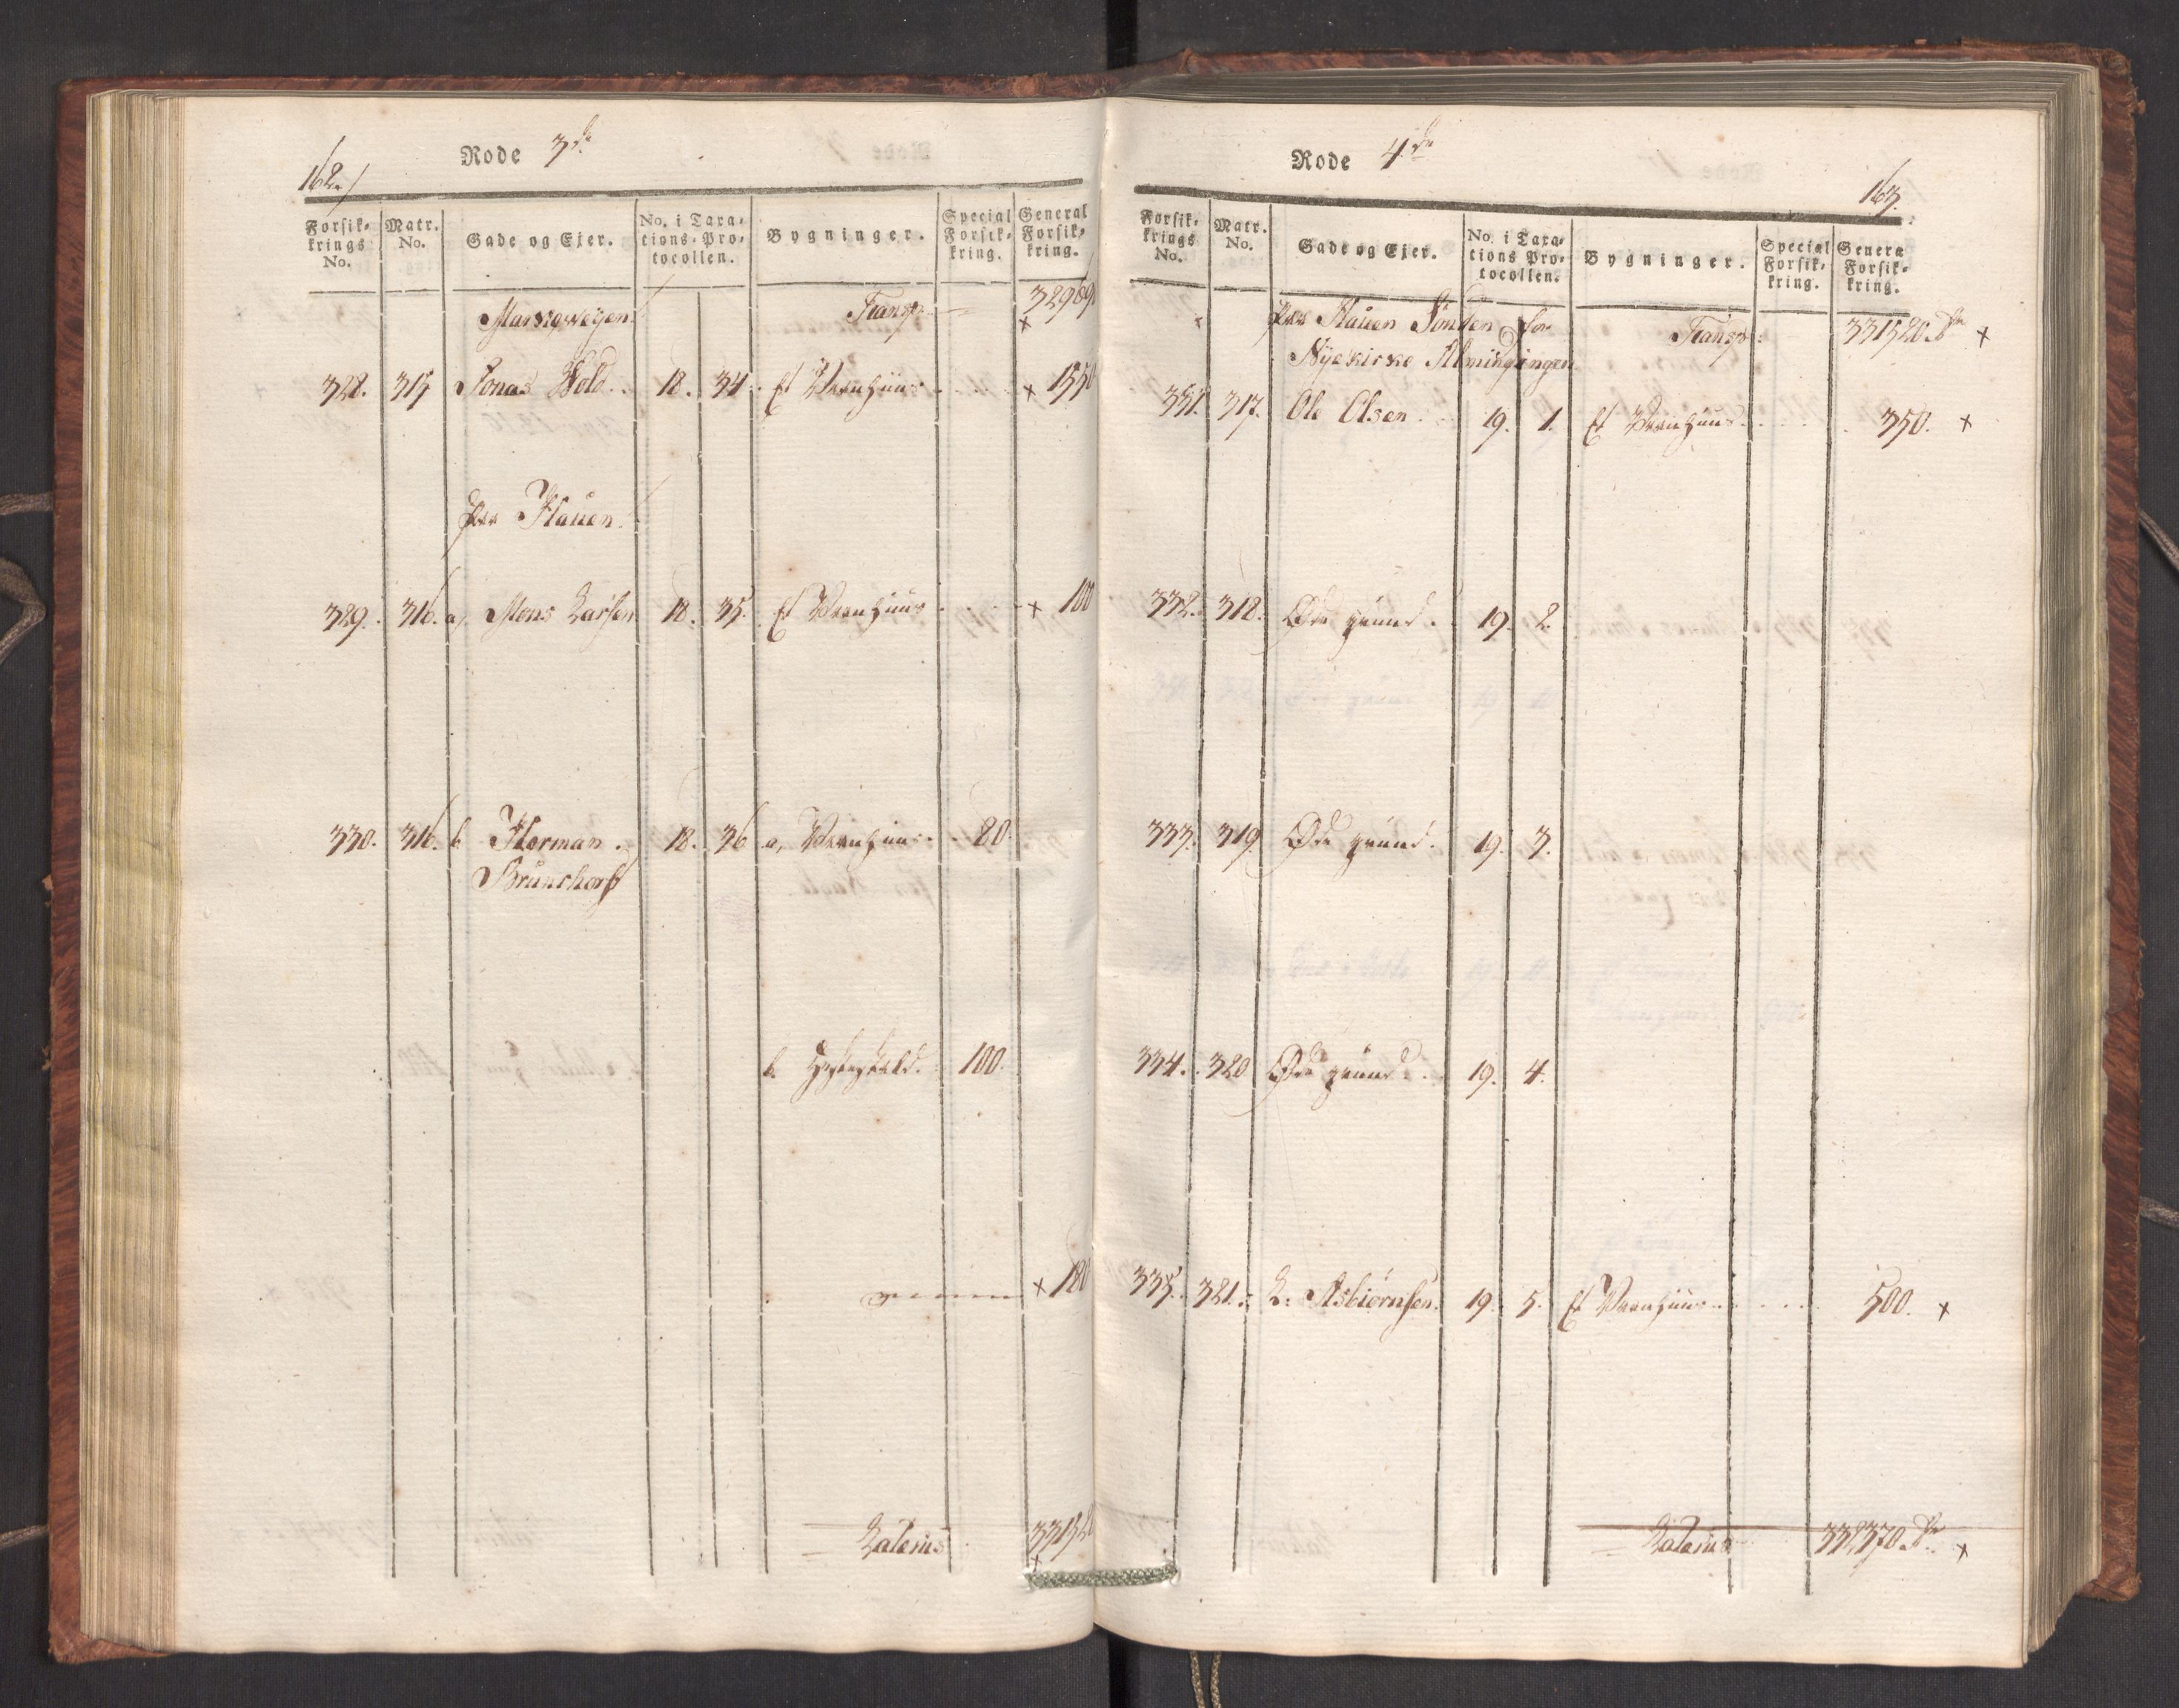 162./
Rode 3de
Forsik-
krings
No.
Matr.
No.
Gade og Ejer.
No. i Taxa-
tions-Pro-
tocollen.
Bygninger.
Special
Forsik-
kring.
General
Forsik-
kring.
Marregveyen. Transp. 32969
328. 315 Jonas Wold 18. 34. Et Vaanhuus x 1550
paa Hauen.
329. 316. a, Mons Larsen 18. 35. Et Vaanhuus x 100
330. 316. b Herman 18. 36 a, Vaanhuus 80.
Brunchorst
b. 100.
x 180
Laterus 33152
x
Rode 4de
163.
Forsik-
krings
No.
Matr.
No.
Gade og Ejer.
No. i Taxa-
tions Pro-
tocollen.
Bygninger.
Special
Forsik-
kring.
Genera
Forsik-
kring.
paa Hauen Sønden for Transp: 331520. x
Nyekirke Alminingen
331. 317. Ole Olsen 19. 1. Et Vaanhuus 350. x
332. 318. Øde grund. 19. 2.
333. 319. Øde grund. 19. 3.
334. 320 Øde grund. 19. 4.
335. 321. L: Asbiörnsen. 19. 5. Et Vaanhuus 500. x
Laterus 332370. x